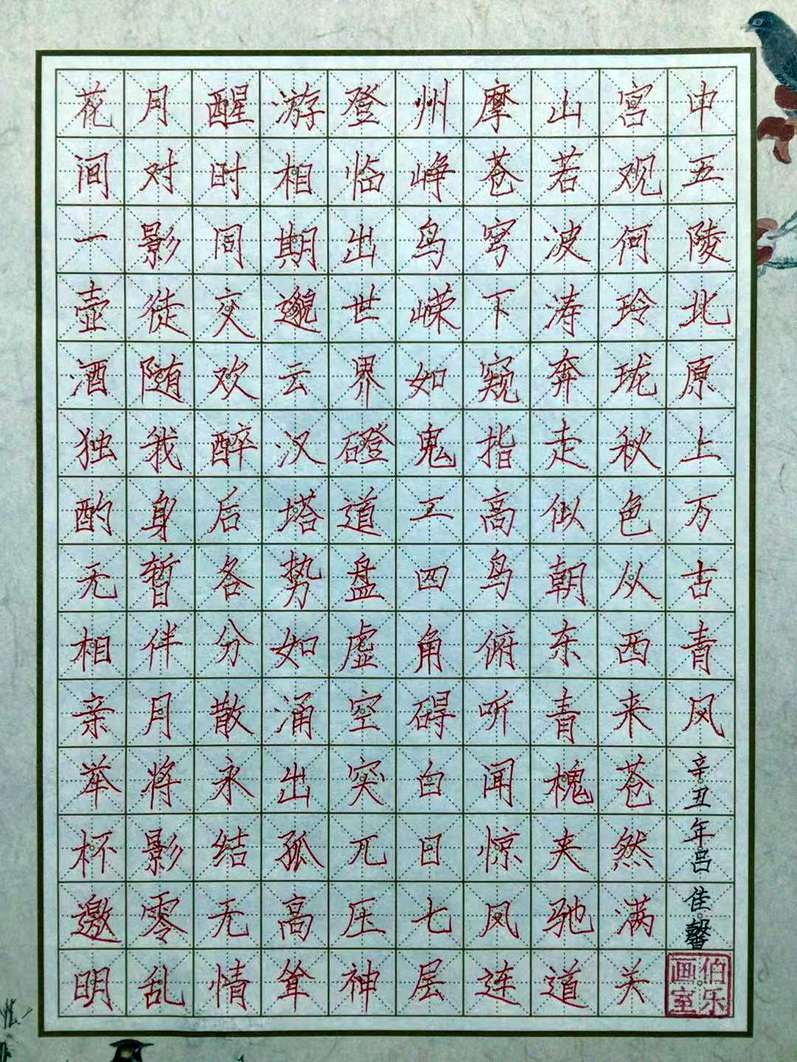 花间一壶酒独酌无相亲举杯邀明
月对影徒随我身暂伴月将影零乱
醒时同交欢醉后各分散永结无情
游相期邈云汉塔势如涌出孤高耸
登临出世界磴道盘虚空突兀压神
州峥鸟嵘如鬼工四角碍白日七层
摩苍穹下窥指高鸟俯听闻惊风连
山若波涛奔走似朝东青槐夹驰道
宫观何玲珑秋色从西来苍然满关
中五陵北原上万古青风
辛丑年吕佳馨
伯乐画室